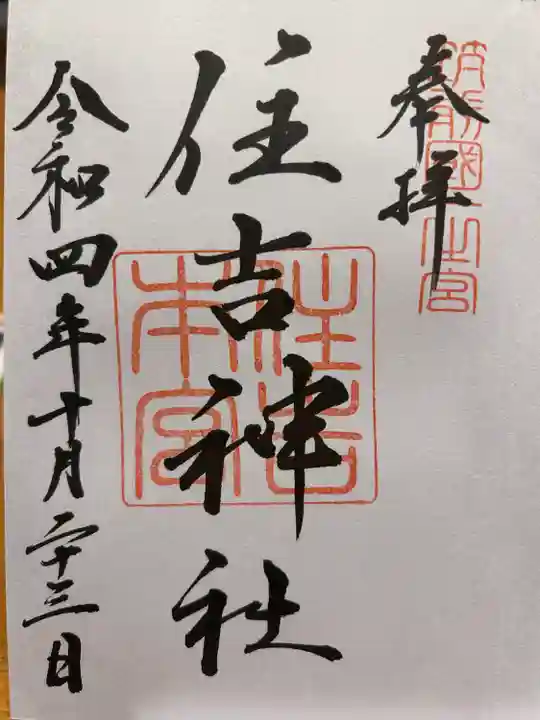 奉拝
筑前國一之宮
住吉神社
住吉本宮
令和四年十月二十三日